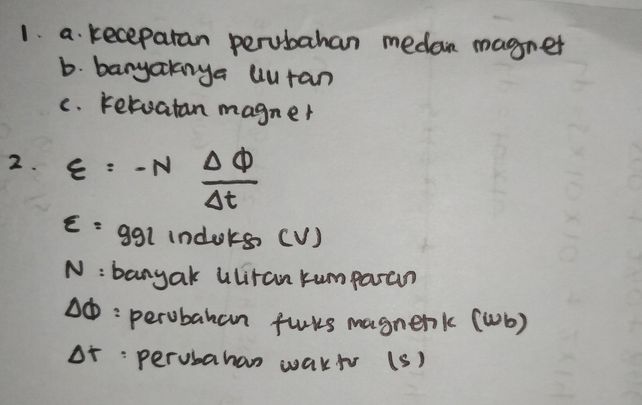 1. a. kecepatan perubahan medan magnet
b. banyaknya lilitan
c. kekuatan magnet
2. ε = -N ΔΦ / Δt
ε = ggl induksi (V)
N : banyak lilitan kumparan
ΔΦ : perubahan fluks magnetik (wb)
Δt : perubahan waktu (s)